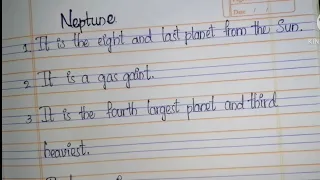 Neptune
1. It is the eight and last planet from the Sun.
2. It is a gas gaint.
3. It is the fourth largest planet and third
heaviest.